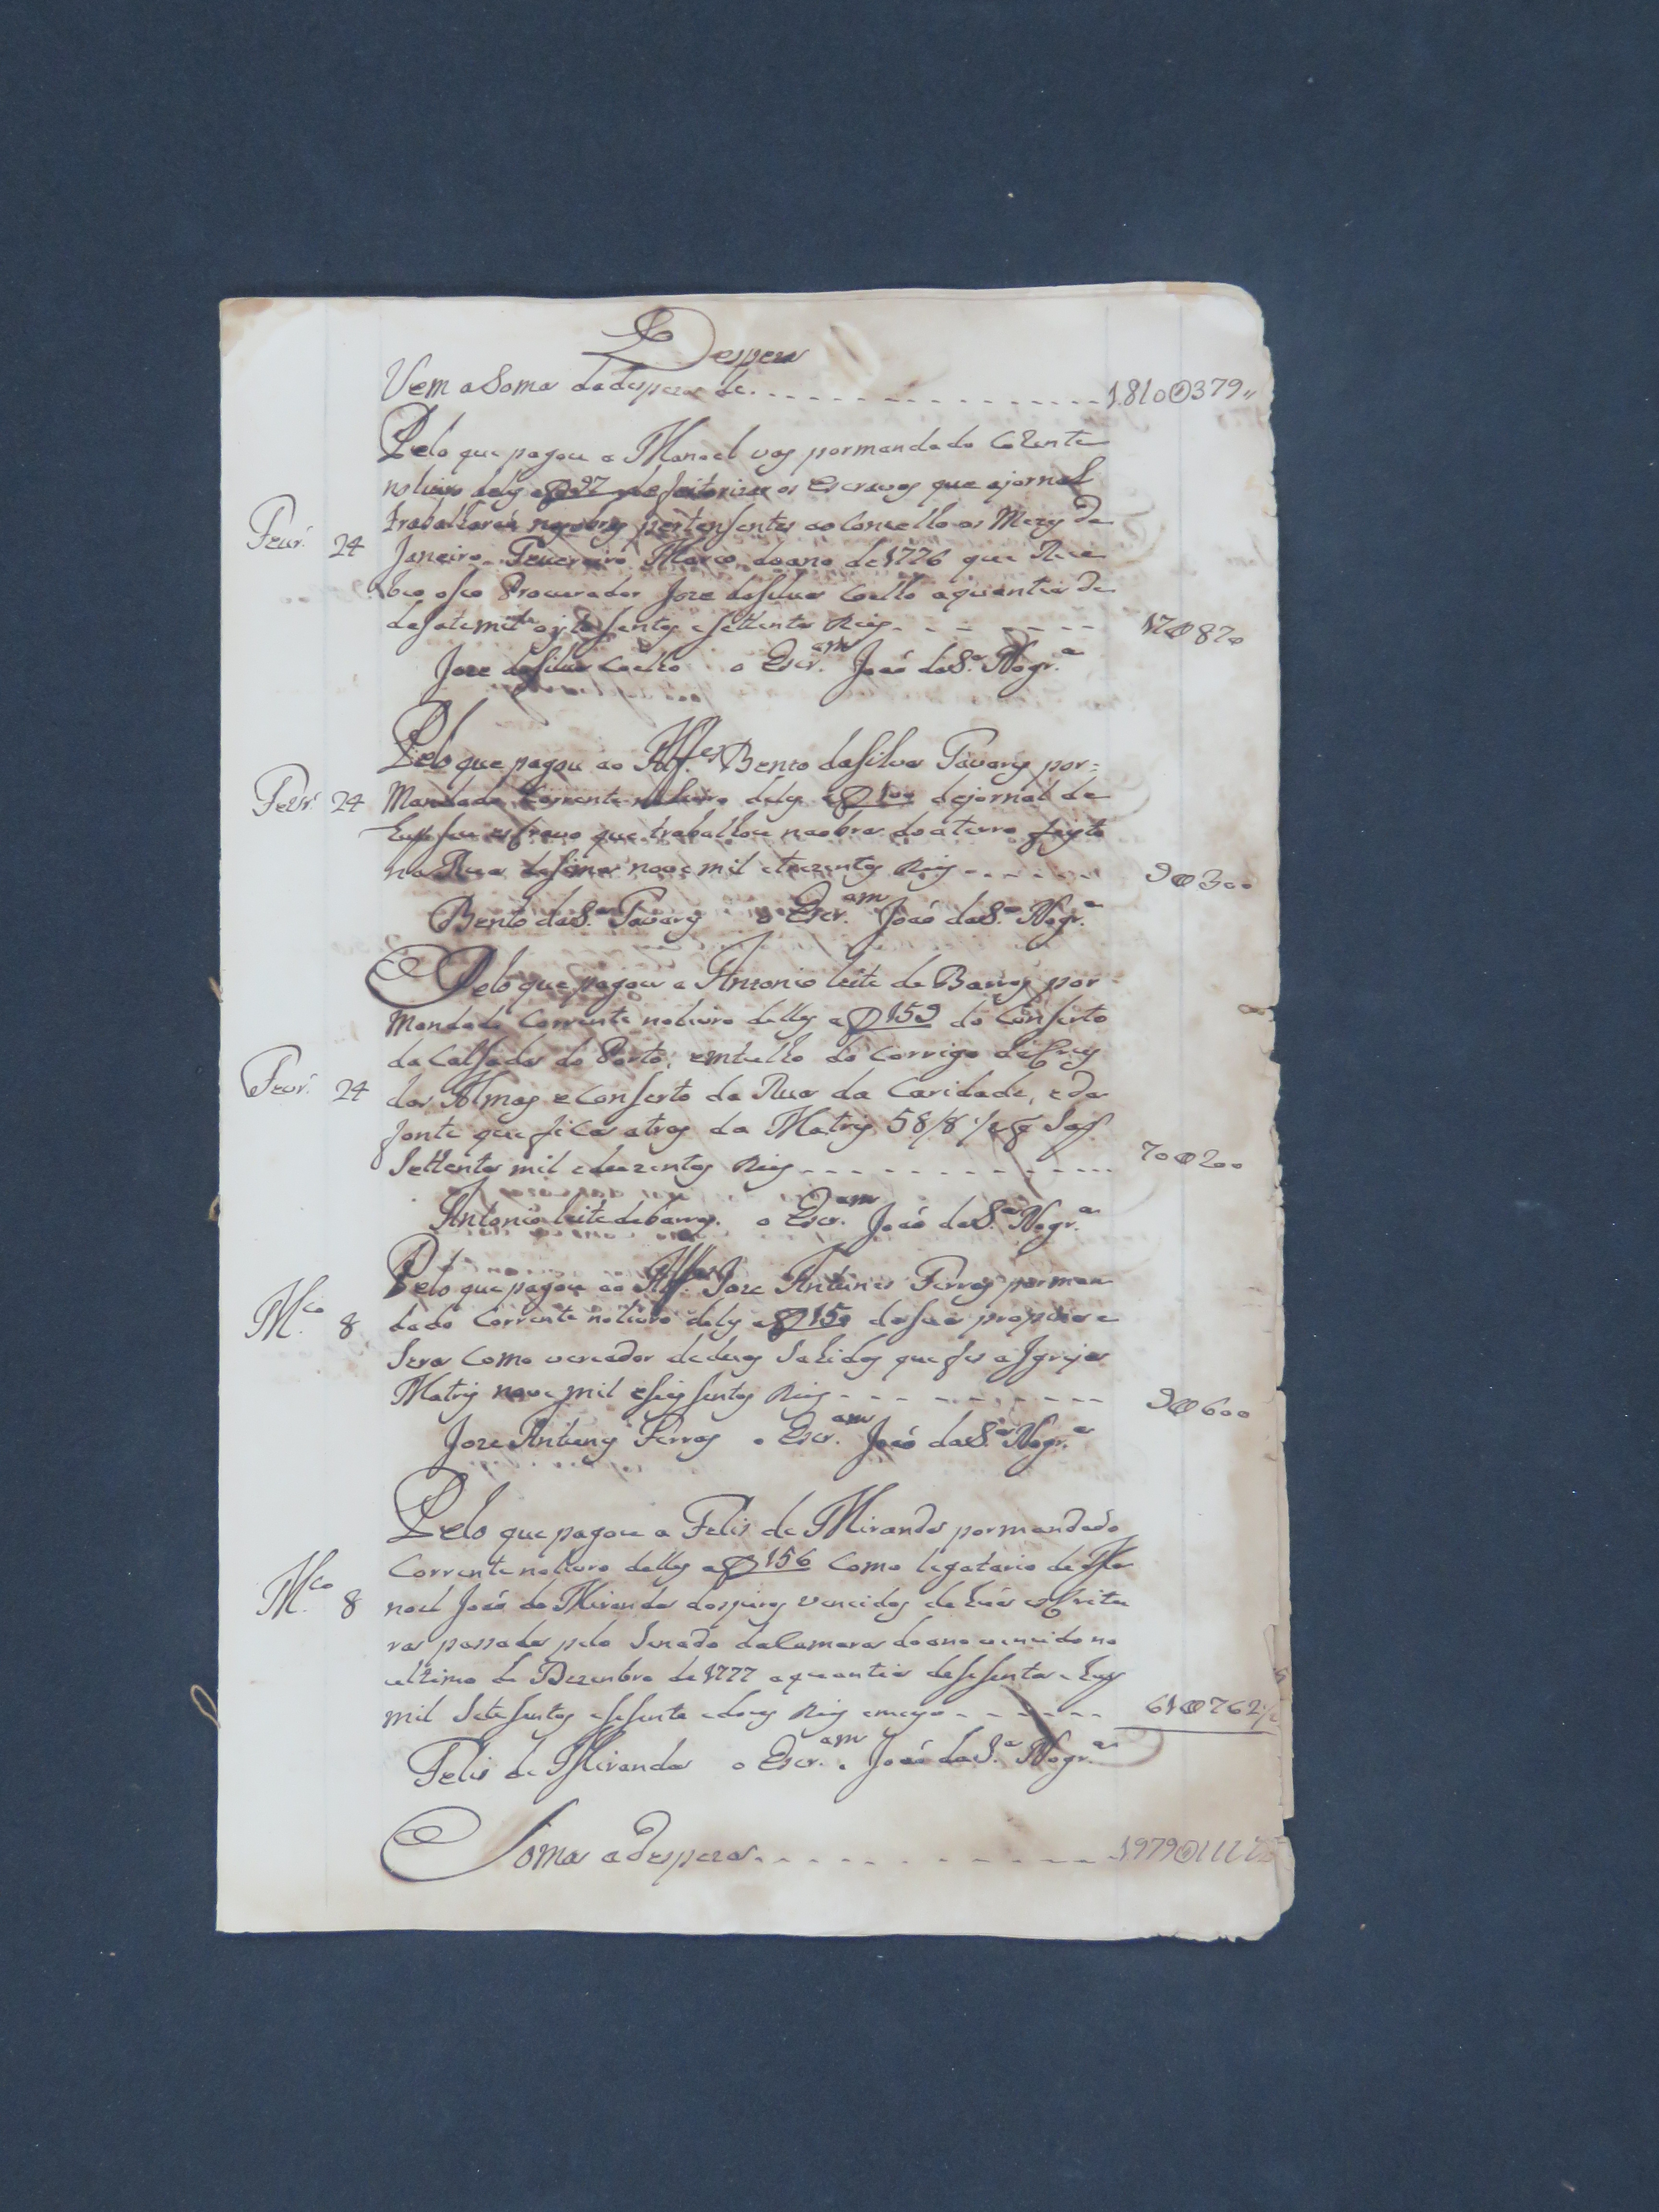 Despeza
Vem a Soma da despeza de 1810@379
Pelo que pagou a Manoel Vaz por mandado Corente
no livro delles a f 97 de feitorizar os Escravos que a jornal
trabalharaó nas obras pertensentes ao Conselho os Mezes de
Fevr.º 24 Janeiro, Fevereiro Março do ano de 1776 que Rece
beo o seo Procurador Joze da Silva Coelho a quantia de
dasate mil e oytosentos e settenta Reis 17@870
Joze da Silva Coelho o Escr.am Joaó da S.ª Nogr.ª
Pelo que pagou ao Alf.es Bento da Silva Tavares por=
Fevr.º 24 Mandado Corrente no livro delles a f 100 de jornal de
hum seu escravo que trabalhou na obra do aterro feyto
na Rua de Sima nove mil e trezentos Reis 9@300
Bento da S.ª Tavares o Escr.am Joaó da S.ª Nogr.ª
Pelo que pagou a Antonio Leite de Barros por
Mandado Corrente no livro delles a f 159 do Conserto
da Calsada do Porto, entulho do Corrigo de
Fevr.º 24 das Almas e Conserto da Rua da Caridade, e da
fonte que fica atras da Matris 58/8
Settenta mil e duzentos Reis 70@200
Antonio Leite de barros o Escr.am Joaó da S.ª Nogr.ª
Pelo que pagou ao Alf.es Joze Antunes Ferras por man
M.ço 8 dado Corrente no livro delles a f 150 da sua propina e
Sera Como vereador de duas Sahidas que fes a Igreja
Matris nove mil e seis sentos Reis 9@600
Joze Antunes Ferras o Escr.am Joaó da S.ª Nogr.ª
Pelo que pagou a Felis de Miranda por mandado
Corrente no livro delles a f 156 Como legatario de Ma
M.ço 8 noel Joaó de Miranda dos juros vencidos de huá escritu
ra passada pelo Senado da Camara do ano vencido no
ultimo de Dezenbro de 1777 a quantia de sesenta e hum
mil Sete sentos e sesenta e dous Reis e meyo 61@762½
Felis de Miranda o Escr.am Joaó da S.ª Nogr.ª
Soma a despeza 1979@111